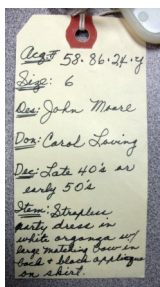 Acq# 58.86.24.y
Size: 6
Des: John Moore
Don: Carol Loving
Dec: Late 40's or
early 50's
Item: Strapless
party dress in
white organza w/
large matching bow in
back + black appliques
on skirt.